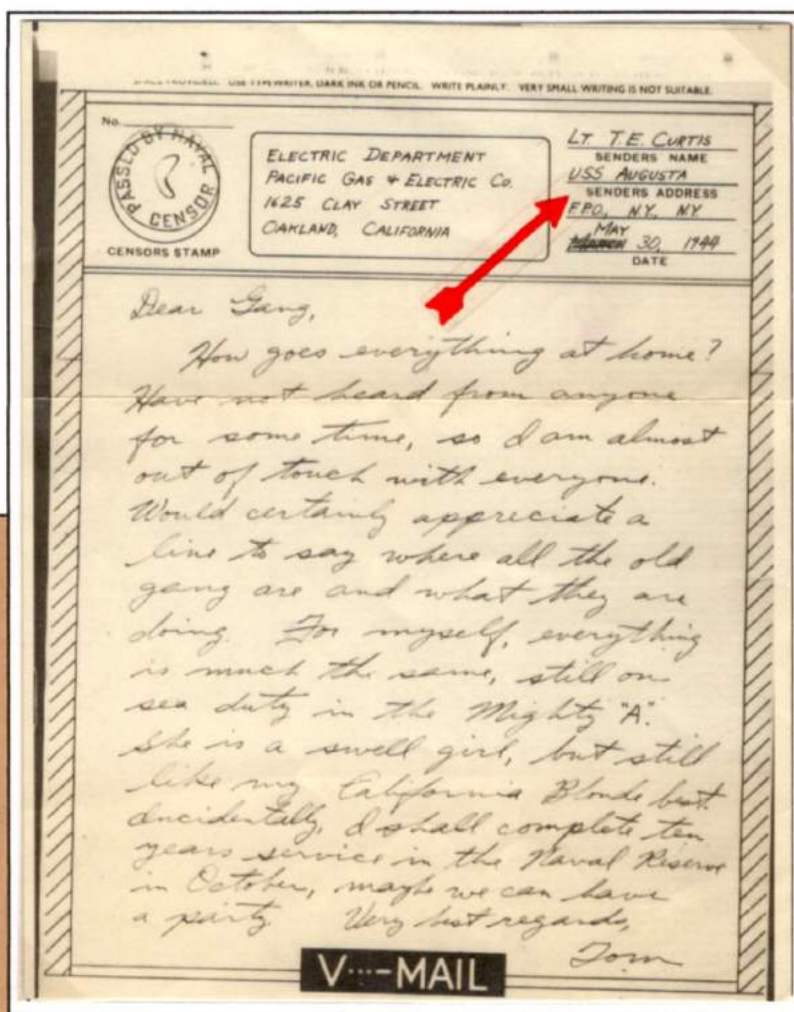 USE TYPEWRITER, DARK INK OR PENCIL. WRITE PLAINLY. VERY SMALL WRITING IS NOT SUITABLE.
No.
PASSED BY NAVAL CENSOR
CENSORS STAMP
ELECTRIC DEPARTMENT
PACIFIC GAS & ELECTRIC CO.
1625 CLAY STREET
OAKLAND, CALIFORNIA
LT. T.E. CURTIS
SENDERS NAME
USS AUGUSTA
SENDERS ADDRESS
F.P.O., N.Y., NY
MAY
30, 1944
DATE
Dear Gang,
How goes everything at home?
Have not heard from anyone
for some time, so I am almost
out of touch with everyone.
Would certainly appreciate a
line to say where all the old
gang are and what they are
doing. For myself, everything
is much the same, still on
sea duty in the Mighty "A".
She is a swell girl, but still
like my California Blonde best.
Incidentally, I shall complete ten
years service in the Naval Reserve
in October, maybe we can have
a party. Very best regards,
Tom
V···—MAIL